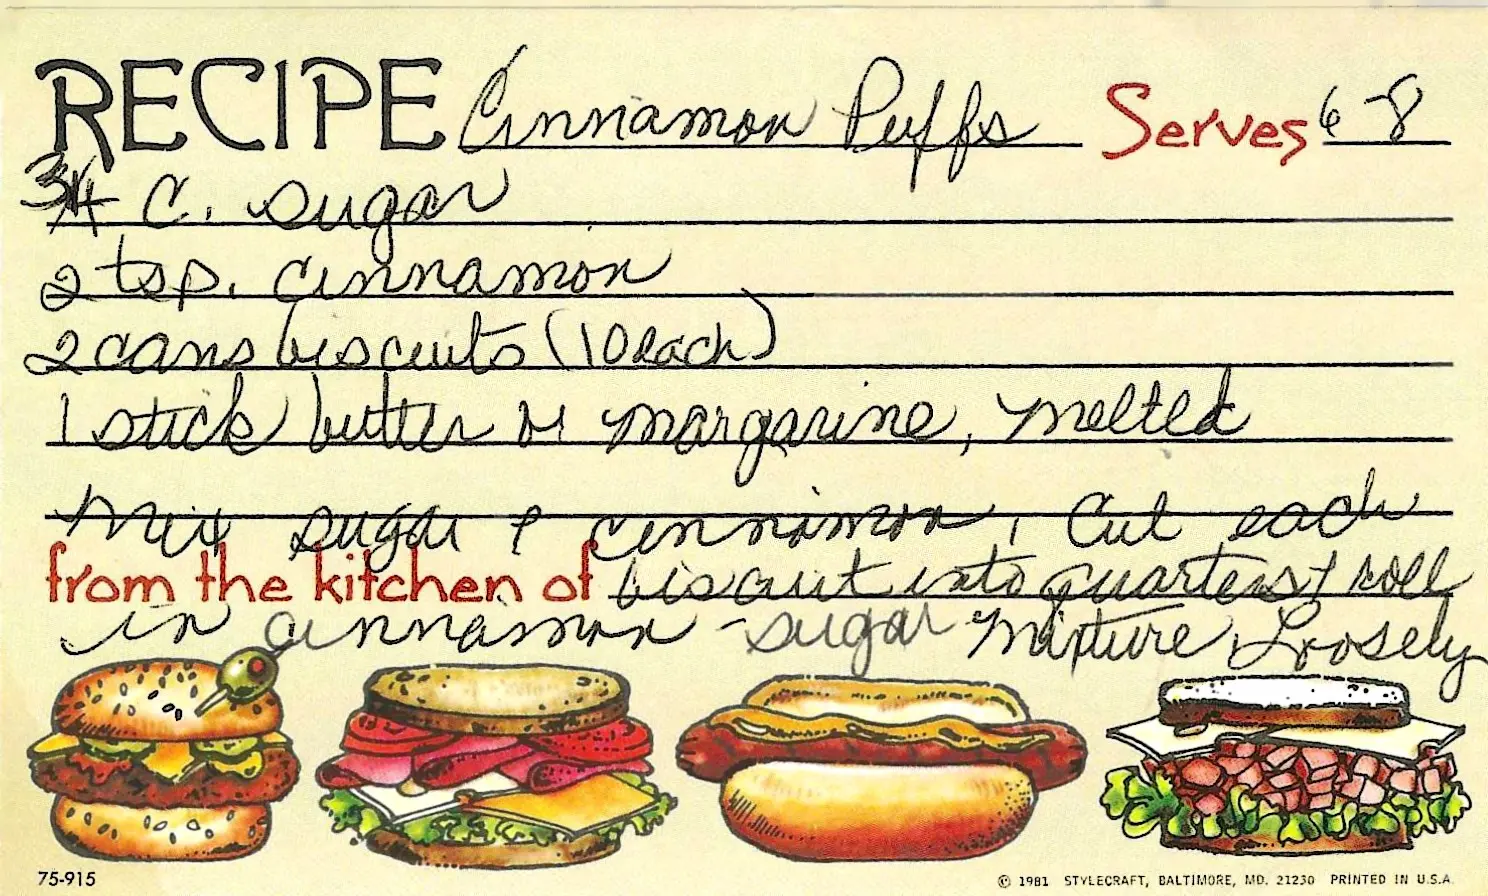 RECIPE Cinnamon Puffs Serves 6-8
3/4 C. sugar
2 tsp. cinnamon
2 cans biscuits (10 each)
1 stick butter or margarine, melted
Mix sugar & cinnamon, Cut each
from the kitchen of biscuit into quarters & roll
in cinnamon-sugar mixture. Loosely
75-915
© 1981 STYLECRAFT, BALTIMORE, MD. 21230 PRINTED IN U.S.A.